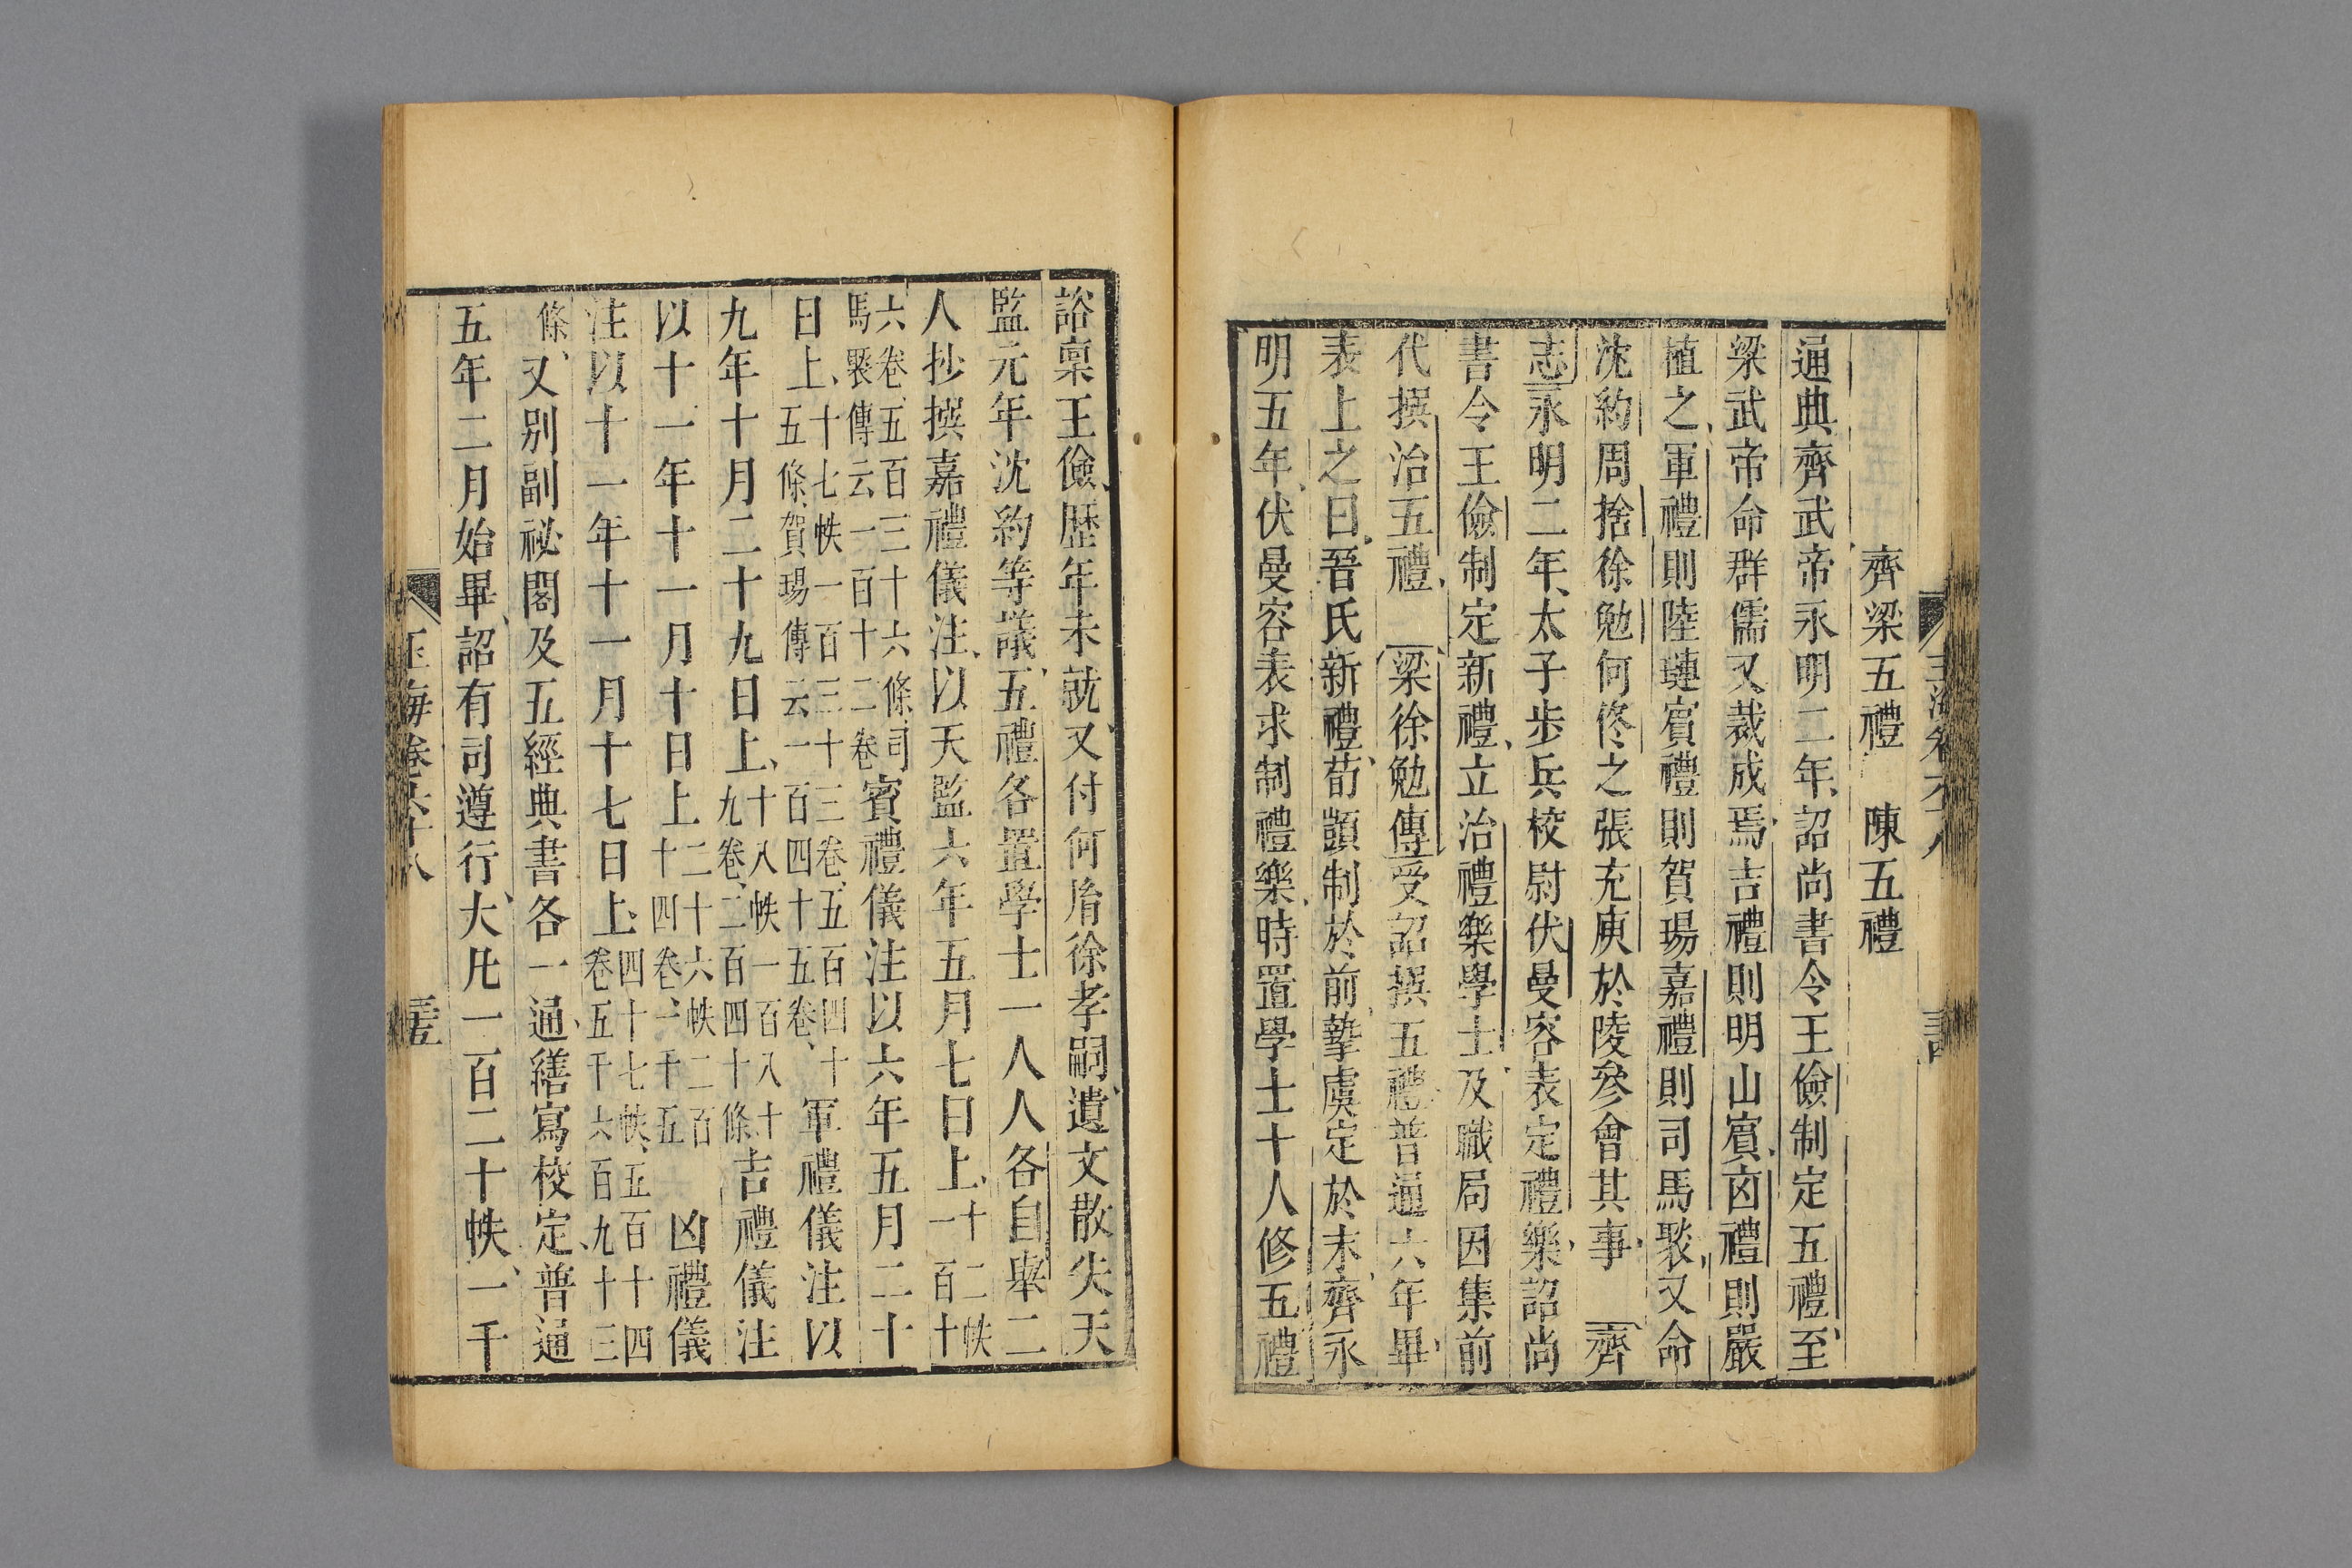 齊梁五禮　陳五禮
通典齊武帝永明二年詔尚書令王儉制定五禮至
梁武帝命群儒又裁成焉吉禮則明山賓凶禮則嚴
植之軍禮則陸璉賓禮則賀瑒嘉禮則司馬褧又命
沈約周捨徐勉何佟之張充庾於陵參會其事　齊
志永明二年太子步兵校尉伏曼容表定禮樂詔尚
書令王儉制定新禮立治禮樂學士及職局因集前
代撰治五禮　梁徐勉傳受詔撰五禮普通六年畢
表上之曰晉氏新禮荀顗制於前摯虞定於末齊永
明五年伏曼容表求制禮樂時置學士十人修五禮
諮稟王儉歴年未就又付何胤徐孝嗣遺文散失天
監元年沈約等議五禮各置學士一人人各自舉二
人抄撰嘉禮儀注以天監六年五月七日上十二帙
一百十
六卷五百三十六條司
馬褧傳云一百十二卷賓禮儀注以六年五月二十
日上十七帙一百三十三卷五百四十
五條賀瑒傳云一百四十五卷軍禮儀注以
九年十月二十九日上十八帙一百八十
九卷二百四十條吉禮儀注
以十一年十一月十日上二十六帙二百
二十四卷一千五凶禮儀
注以十一年十一月十七日上四十七帙五百十四
卷五千六百九十三
條又別副祕閣及五經典書各一通繕寫校定普通
五年二月始畢詔有司遵行大凡一百二十帙一千
玉海卷六十八